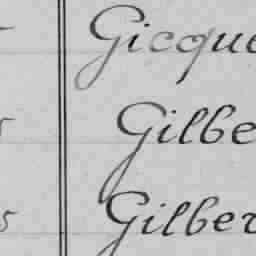 Gicque
Gilbe
5 Gilber